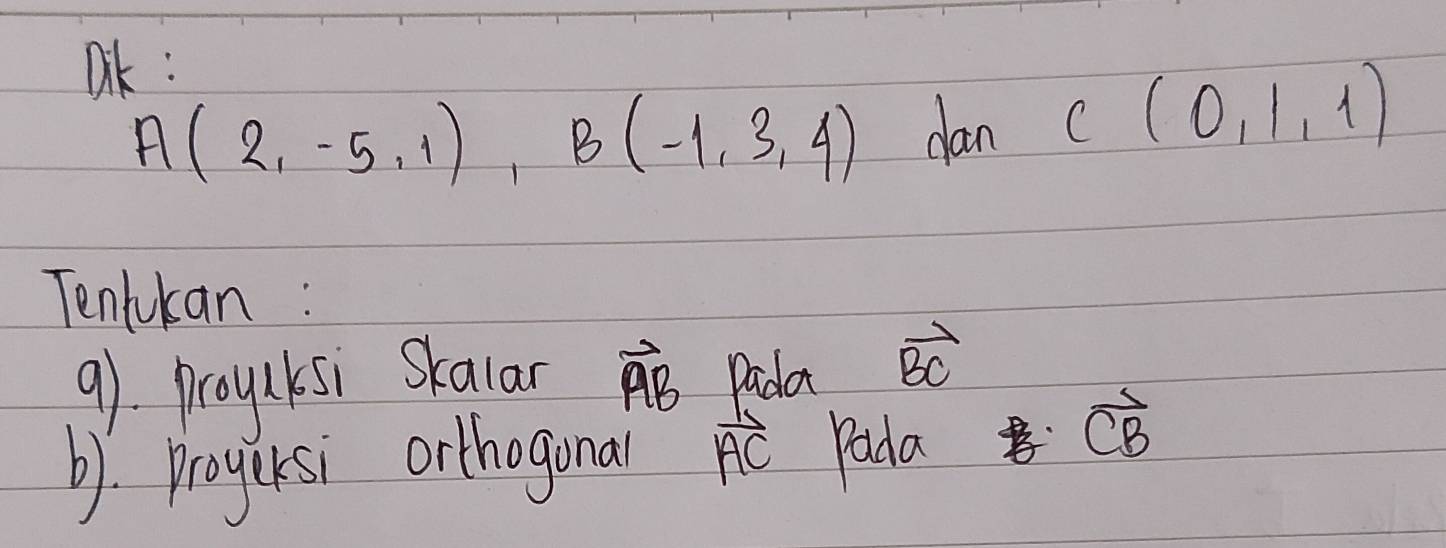 Dik :
A(2, -5, 1), B(-1, 3, 4) dan C (0, 1, 1)
Tentukan :
a). proyeksi Skalar \overrightarrow{AB} pada \overrightarrow{BC}
b). proyeksi orthogonal \overrightarrow{AC} pada \overrightarrow{CB}